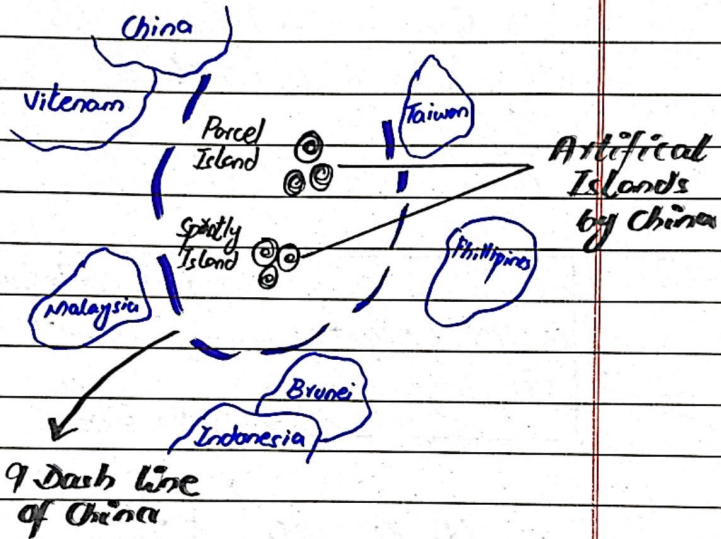 China
Vitenam
Taiwan
Parcel
Island
Artifical
Islands
by China
Spratly
Island
Phillipines
Malaysia
Brunei
Indonesia
9 Dash line
of China